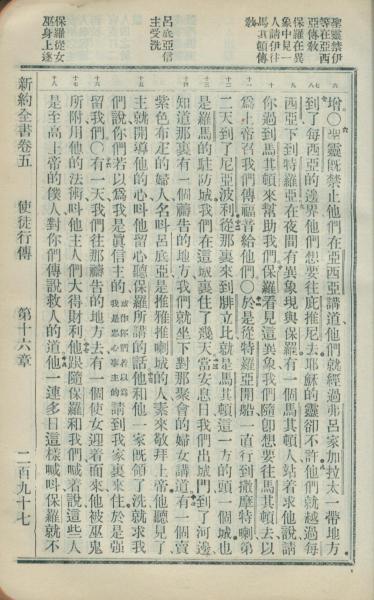 聖靈禁伊
等在亞西
亞傳教
保羅在異
象中見一
人請伊往
馬其頓傳
教
呂底亞信
主受洗
保羅從女
巫身上逐
增○聖靈既禁止他們在亞西亞講道他們就經過弗呂家加拉太一帶地方
到了每西亞的邊界他們想要往庇推尼去耶穌的靈卻不許他們就越過每
西亞下到特羅亞在夜間有異象現與保羅有一個馬其頓人站着求他說請
你過到馬其頓來幫助我們保羅看見這異象我們隨卽想要往馬其頓去以
爲上帝召我們傳福音給他們○於是從特羅亞開船一直行到撒摩特喇第
二天到了尼亞波利從那裏來到腓立比就是馬其頓這一方的頭一個城也
是羅馬的駐防城我們在這城裏住了幾天當安息日我們出城門到了河邊
知道那裏有一個禱告的地方我們就坐下對那聚會的婦女講道有一個賣
紫色布疋的婦人名呌呂底亞是推雅推喇城的人素來敬拜上帝他聽見了
主就開導他的心呌他留心聽保羅所講的話他和他一家既領了洗就求我
們說你們若以爲我是眞信主的或作你們若以爲我是忠心事主的請到我家裏來住於是强
留我們○有一天我們往那禱告的地方去有一個使女迎着面來他被巫鬼
所附用他的法術呌他主人們大得財利他跟隨保羅和我們喊着說這些人
是至高上帝的僕人對你們傳說救人的道他一連多日這樣喊呌保羅就不
新約全書卷五 使徒行傳 第十六章 二百九十七